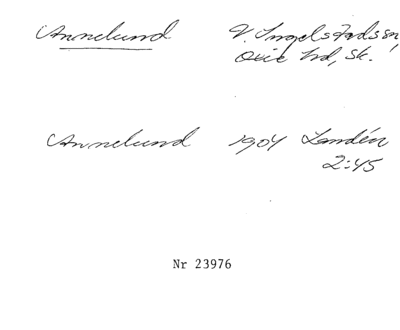 Annelund V. Ingelstads sn,
Oxie hd, Sk.
Annelund 1904 Landén
2:45
Nr 23976